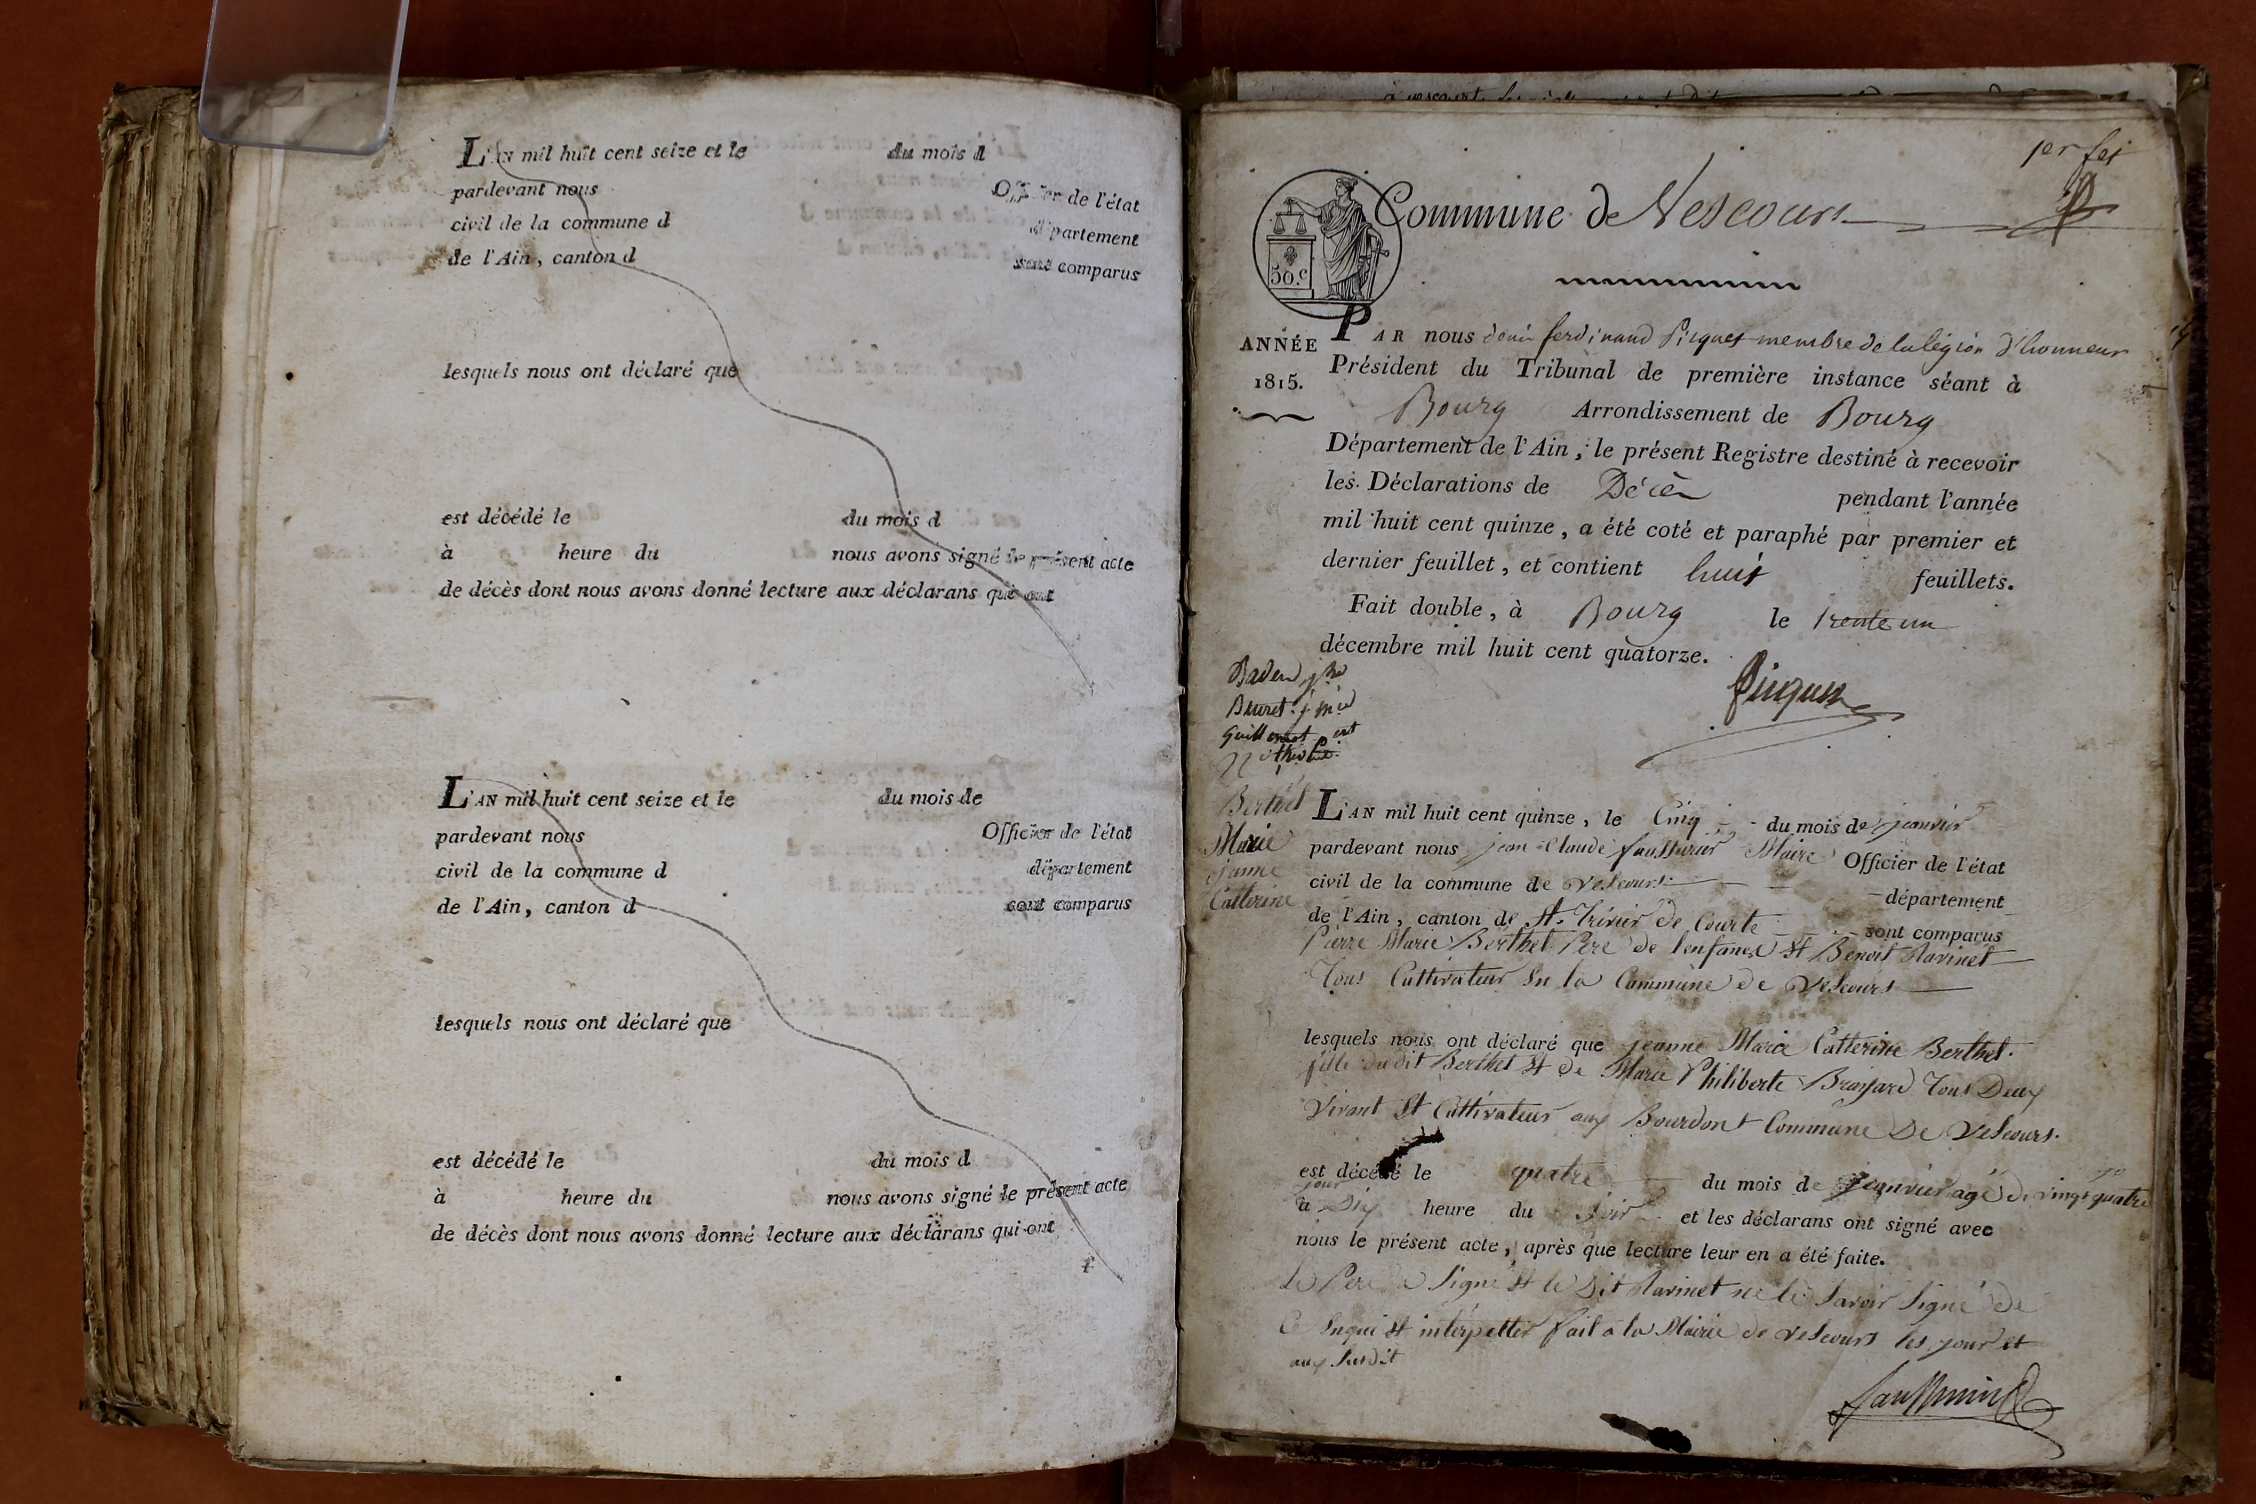 L'AN mil huit cent seize et le du mois d
pardevant nous Officier de l'état
civil de la commune d département
de l'Ain, canton d sont comparus
lesquels nous ont déclaré que
est décédé le du mois d
à heure du nous avons signé le présent acte
de décès dont nous avons donné lecture aux déclarans qui ont
L'AN mil huit cent seize et le du mois de
pardevant nous Officier de l'état
civil de la commune d département
de l'Ain, canton d sont comparus
lesquels nous ont déclaré que
est décédé le du mois d
à heure du nous avons signé le présent acte
de décès dont nous avons donné lecture aux déclarans qui ont
1er fet
Commune de Vescours
50.c
ANNÉE
1815.
PAR nous ferdinand Picquet membre de la légion d'honneur
Président du Tribunal de première instance séant à
Bourg Arrondissement de Bourg
Département de l'Ain, le présent Registre destiné à recevoir
les Déclarations de Décès pendant l'année
mil huit cent quinze, a été coté et paraphé par premier et
dernier feuillet, et contient huit feuillets.
Fait double, à Bourg le trente un
décembre mil huit cent quatorze.
Picquet
Berthet
Marie
jeanne
Catterine
L'AN mil huit cent quinze, le Cinq du mois de janvier
pardevant nous jean Claude faussurier Maire Officier de l'état
civil de la commune de Vescours département
de l'Ain, canton de St. Trivier de Courte sont comparus
Pierre Marie Berthet Pere de l'enfance Et Benoit Ravinet
Tous Cultivateur En la Commune de Vescours
lesquels nous ont déclaré que jeanne Marie Catterine Berthet.
fille du dit Berthet Et de Marie Philiberte Tous Deux
Vivant Et Cultivateur aux Bourdont Commune De Vescours.
est décédé le quatre du mois de janvier agé de vingt quatre
jour
à Six heure du soir et les déclarans ont signé avec
nous le présent acte, après que lecture leur en a été faite.
Le Pere a Signé Et le Dit Ravinet ne le Savoir Signé de
Ce Enqui Et interpetter fait a la Mairie de Vescours les jour et
aux Susdit